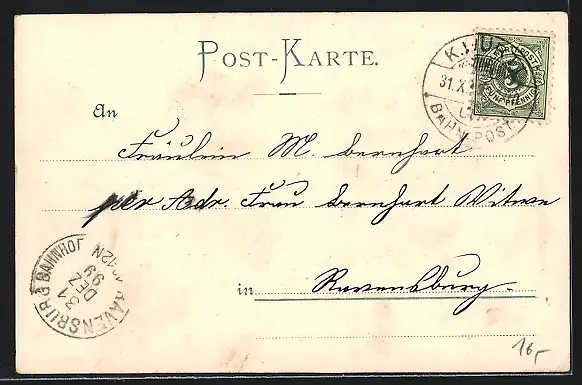 POST-KARTE.
K.WÜ
31.X
BAHNPOST
FÜNF PFENNIG
5
An
Fräulein M. Bernhart
per Adr. Frau Bernhart Witwe
in Ravensburg.
RAVENSBURG BAHNHOF
31
DEZ
99
N. 12
16,-